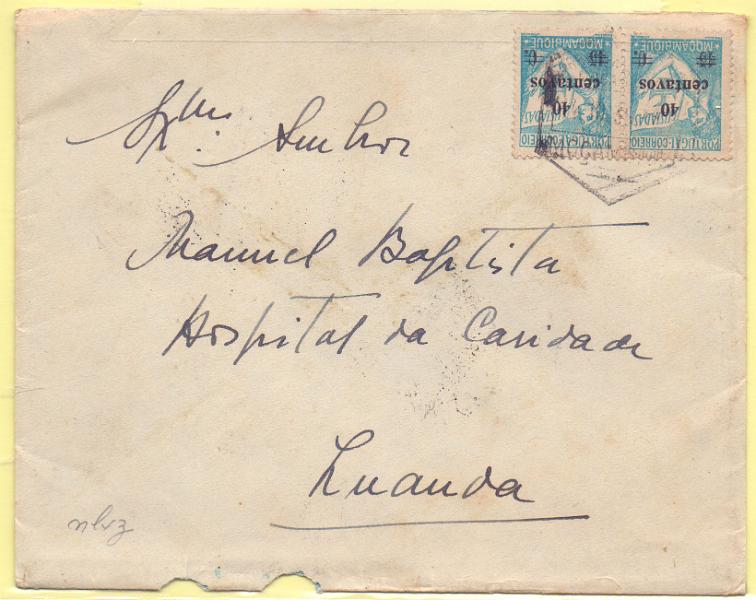 Exmo. Senhor
Manuel Baptista
Hospital da Caridade
Luanda
PORTUGAL-CORREIO
40
centavos
45 C.
MOÇAMBIQUE
PORTUGAL-CORREIO
40
centavos
45 C.
MOÇAMBIQUE